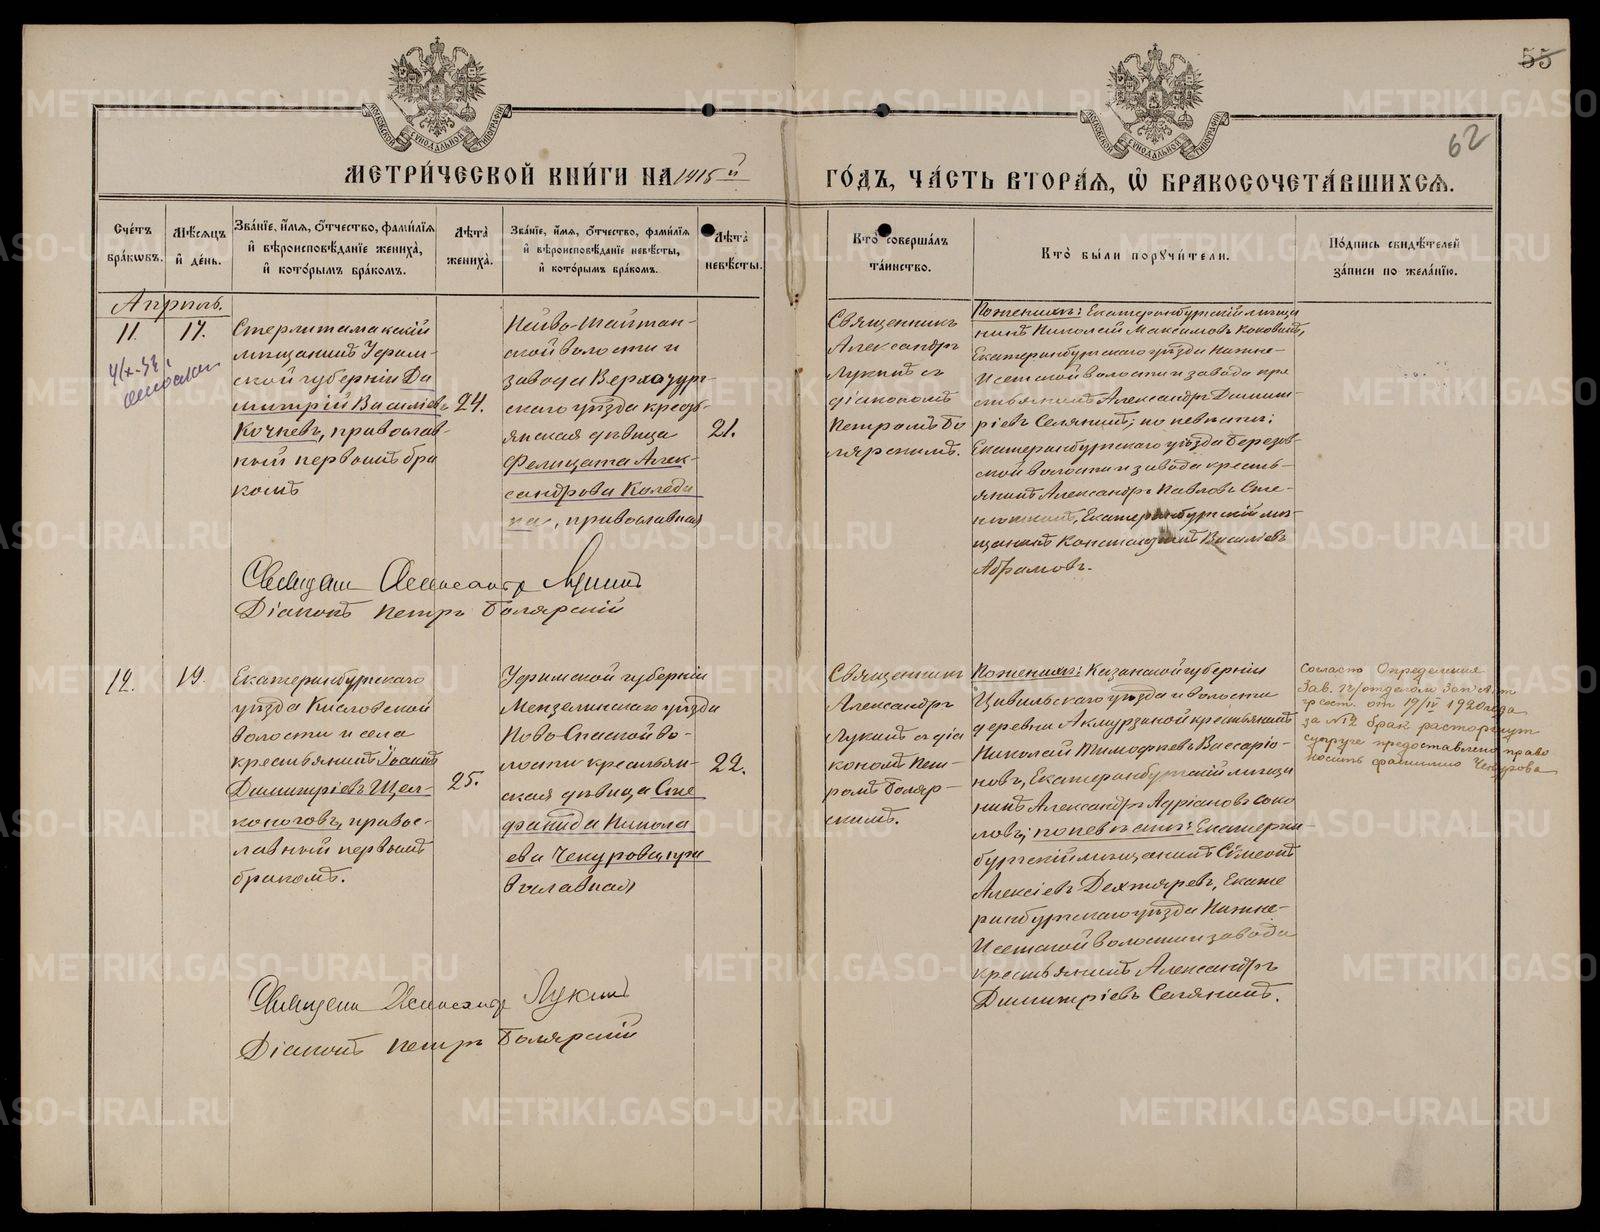 55
62
МОСКОВСКОЙ СѴНОДАЛЬНОЙ ТИПОГРАФІИ
МОСКОВСКОЙ СѴНОДАЛЬНОЙ ТИПОГРАФІИ
МЕТРИ́ЧЕСКОЙ КНИ́ГИ НА 1915й ГО́ДЪ, ЧА́СТЬ ВТОРА́Я, Ѽ БРАКОСОЧЕТА́ВШИХСЯ.
Сче́тъ бра́кѡвъ.
Мѣ́сяцъ и҆ де́нь.
Зва́нїе, и҆́мя, ѻ҆́тчество, фами́лїя
и҆ вѣроисповѣ́данїе жениха̀,
и҆ кото́рымъ бра́комъ.
Лѣта̀ жениха̀.
Зва́нїе, и҆́мя, ѻ҆́тчество, фами́лїя
и҆ вѣроисповѣ́данїе невѣ́сты,
и҆ кото́рымъ бра́комъ.
Лѣта̀ невѣ́сты.
Кто̀ соверша́лъ
та́инство.
Кто̀ бы́ли порꙋчи́тели.
По́дпись свидѣ́телей
за́писи по жела́нїю.
Апрѣль.
11.
17.
Стерлитамакскій
мѣщанинъ Уфим-
ской губерніи Ди
митрій Василіевъ
Кочневъ, православ-
ный первымъ бра
комъ
24.
Нейво-Шайтан-
ской волости и
завода Верхотур-
скаго уѣзда кресть-
янская дѣвица
Фелицата Алек-
сандрова Коледи
на, православная
21.
Священникъ
Александръ
Лукинъ съ
діакономъ
Петромъ Бо
лярскимъ.
По женихѣ: Екатеринбургскій мѣща
нинъ Николай Максимовъ Коковинъ,
Екатеринбургскаго уѣзда Нижне-
Исетской волости и завода кре
стьянинъ Александръ Димит-
ріевъ Селянинъ; по невѣстѣ:
Екатеринбургскаго уѣзда Березов-
ской волости и завода кресть-
янинъ Александръ Павловъ
Екатеринбургскій мѣ-
щанинъ Константинъ Василіевъ
Абрамовъ.
Священ Александръ Лукинъ
Діаконъ Петръ Болярскій
12.
19.
Екатеринбургскаго
уѣзда Кисловской
волости и села
крестьянинъ Іоаннъ
Димитріевъ Щел-
коноговъ, правос-
лавный первымъ
бракомъ.
25.
Уфимской губерніи
Мензелинскаго уѣзда
Ново-Спасской во-
лости крестьян-
ская дѣвица Сте
фанида Никола
ева Чекурова, пра
вославная
22.
Священникъ
Александръ
Лукинъ съ діа
кономъ Пет-
ромъ Боляр-
скимъ.
По женихѣ: Казанской губерніи
Цивильскаго уѣзда и волости
деревни Акмурзиной крестьянинъ
Николай Тимофеевъ Виссаріо-
новъ, Екатеринбургскій мѣща
нинъ Александръ Адріановъ Соко
ловъ; по невѣстѣ: Екатерин-
бургскій мѣщанинъ Сѵмеонъ
Алексіевъ Дехтяревъ, Екате
ринбургскаго уѣзда Нижне-
Исетской волости и завода
крестьянинъ Александръ
Димитріевъ Селянинъ.
Согласно Определения
Зав. п/отделом Зап. Акт
гр сост. от 19/IV 1920 года
за №12 брак расторгнут
супруге предоставлено право
носить фамилию Чекурова
Священ Александръ Лукинъ
Діаконъ Петръ Болярскій
METRIKI.GASO-URAL.RU